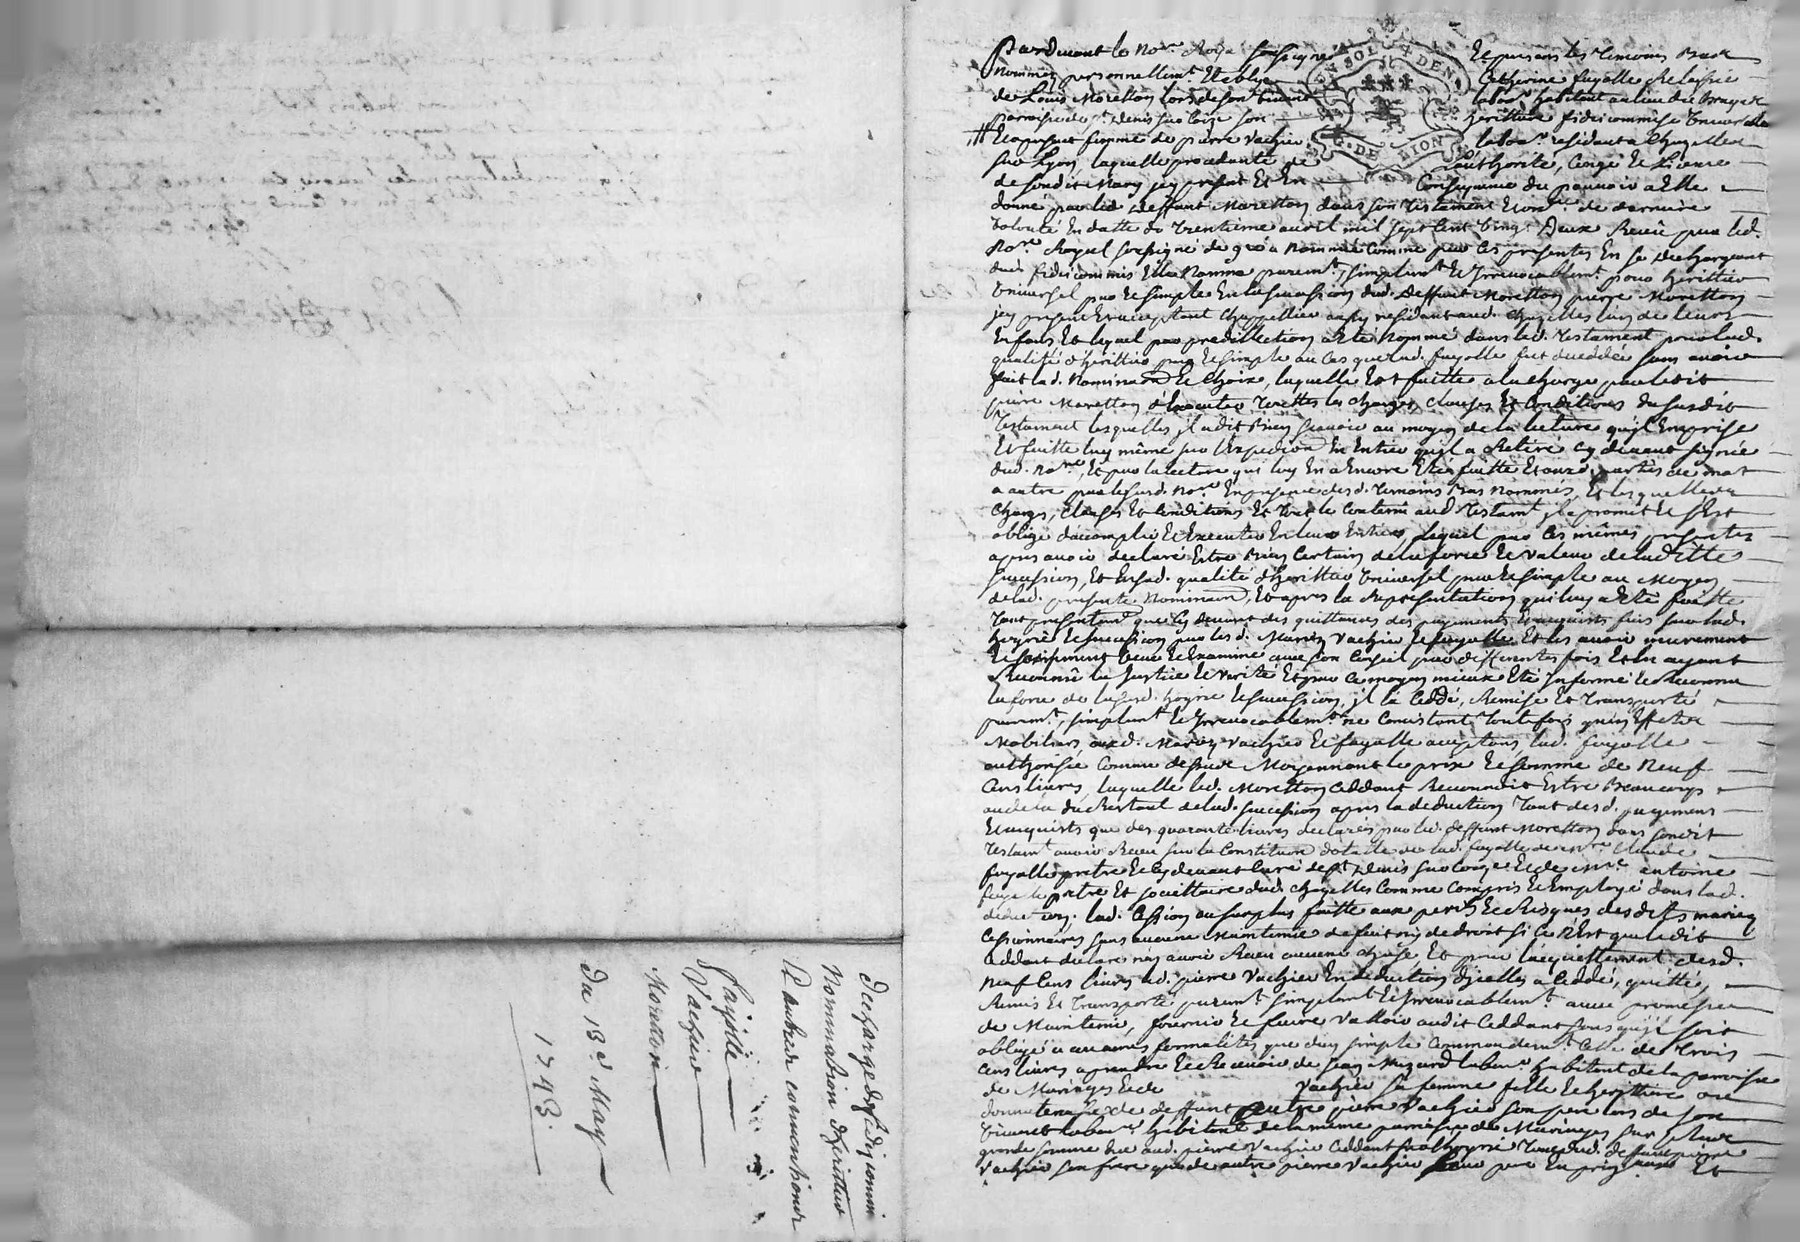 Pardevant le No.re Royal soussigné Et présens les Temoins Bas
Nommés personnellem.t Etablye Catherine fayolle Relaissée
de Louis Moretton lors de son vivant labo.r habitant au lieu du
parroisse de S.t Denis sur Coize son héritière fidéicommise Universelle
Et a present femme de pierre Vachier labo.r résidant a Chazelles
sur Lyon, laquelle procédante de L'authorité, Congé et Licence
de sondit Mary icy présent Et En Conséquence du pouvoir a Elle
donné par led. deffunt Moretton dans son Testament Et ord.re de derniere
Volonté En datte du Trentieme avril mil sept Cent Vingt Deux Receu par led.
No.re Royal soussigné de gré a nommé Comme par Ces présentes En se dechargeant
dud. fideicommis Elle Nomme purem.t, simplem.t Et Irrevocablem.t pour héritier
Universel pur Et simple En la succession dud. Deffunt Moretton pierre Moretton
icy présent Et acceptant Chappellier aussy résidant aud. Chazelles luy de leurs
Enfans Et lequel par predilection a Eté Nommé dans led. Testament pour lad.
qualité d'héritier pur Et simple au Cas que lad. fayolle fut decedée sans avoir
fait lad. Nomina.on Et Choix, laquelle Est faitte a la charge par ledit
pierre Moretton d'Executer Touttes les charges, Clauses Et Conditions du susdit
Testament lesquelles jl a dit Bien sçavoir au moyen de la lecture qu'jl En a prise
Et faitte luy même sur l'Expedi.on En Entier qu'jl a Retiré cy devant signée
dud. No.re, Et par la lecture qui luy En a Encore Eté faitte de mot
a autre par le susd. No.re En presence desd. Temoins Bas Nommés, Et lesquelles
Charges, Clauses Et Conditions Et Tout le Contenu aud. Testam.t jl a promis Et s'Est
obligé d'accomplir Et Executer En leur Entier, lequel par Ces mêmes présentes
apres avoir declaré Estre Bien Certain de la force Et Valeur de laditte
succession, Et En sad. qualité d'héritier Universel pur Et simple au Moyen
de lad. presente Nomina.on, Et apres la Representation qui luy a Eté faitte
Tout presentem.t que cy devant des quittances des payements Et acquits faits sur lad.
hoyrie Et succession par lesd. Mariés Vachier Et fayolle Et les avoir meurement
Et Veue Et Examiné avec son Conseil par differentes fois Et En ayant
Reconnu la Justice Et Verité Et par Ce moyen mieux Eté Informé Et Reconnu
la force de lasusd. hoyrie Et succession, jl a Ceddé, Remise Et Transporté
purem.t, simplem.t Et Irrevocablem.t ne Consistant Toutefois qu'en Effets
Mobiliers auxd. Mariés Vachier Et fayolle acceptans, lad. fayolle
authorisée Comme dessus Moyennant le prix Et somme de Neuf
Cens livres, laquelle led. Moretton Ceddant Reconnoit Estre Beaucoup
audela du Restant de lad. succession apres la deduction Tant desd. payemens
Et acquits que des quarante livres declarés par led. deffunt Moretton dans sondit
Testam.t avoir Receu sur la Constitution dotalle de lad. fayolle de M.re Claude
fayolle prêtre Et cy devant Curé de S.t Denis sur Coize Et de M.re antoine
fayolle prêtre Et societtaire dud. Chazelles Comme Compris Et Employé dans lad.
deduction. lad. Cession au surplus faitte aux perils Et Risques desdits mariés
Cessionnaires sans aucune Maintenue de fait ny de droit si Ce n'Est que ledit
Ceddant declare n'en avoir Receu aucune chose Et pour l'acquittement desd.
Neuf Cens livres led. pierre Vachier En deduction d'jcelles a Ceddé, quitté,
Remis Et Transporté purem.t simplem.t Et Irrevocablem.t avec promesse
de Maintenir, fournir Et faire Valloir audit Ceddant sans qu'jl soit
obligé a aucunes formalités que d'un simple Commandem.t Celle de Trois
Cens livres a prendre Et Recevoir de Jean Mizard labo.r habitant de la parroisse
de Maringes Et de Vachier sa femme fille Et héritière
de deffunt autre pierre Vachier son pere lors de son
Vivant labo.r habitant de la même parroisse de Maringes sur plus
grande somme due aud. pierre Vachier Ceddant
Vachier son frere que de autre pierre Vachier leur pere Et
Decharge de fideicommis
Nomination d'héritier
Et autres conventions
Fayolle
Vachier
Moretton
Du 13.e May
1743.